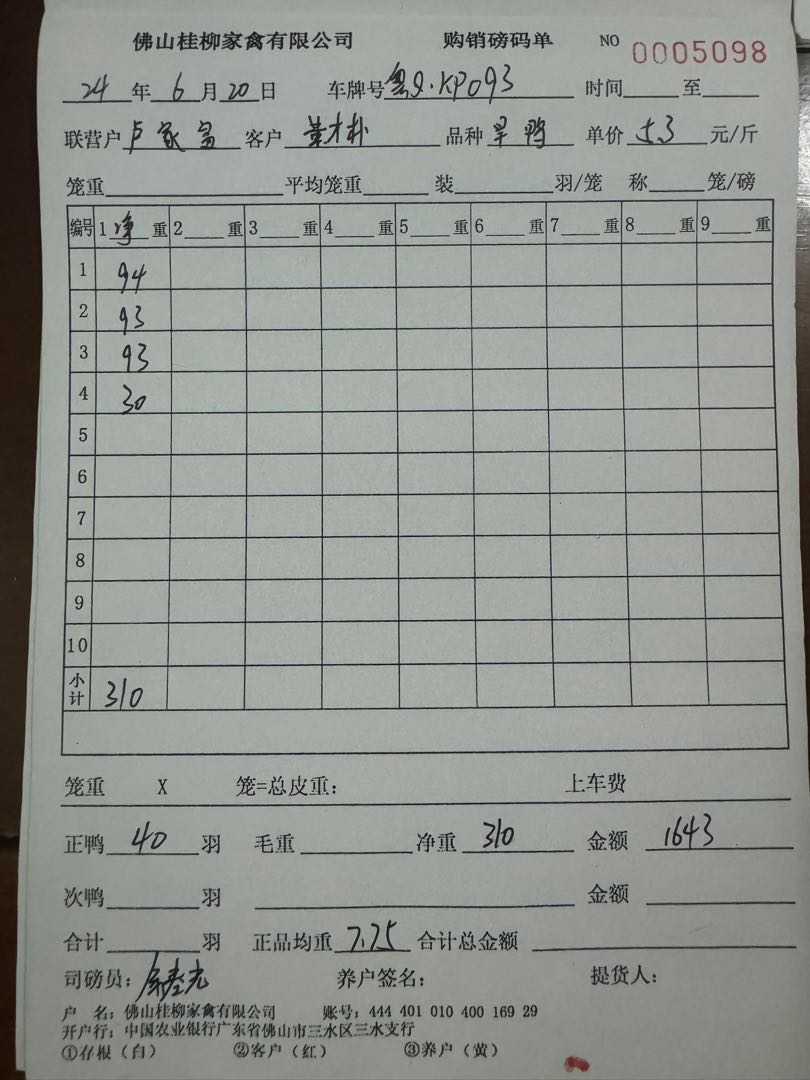 佛山桂柳家禽有限公司 购销磅码单 NO 0005098
24 年 6 月 20 日 车牌号 粤Q·KP093 时间 至
联营户 卢家富 客户 叶才朴 品种 旱鸭 单价 5.3 元/斤
笼重 平均笼重 装 羽/笼 称 笼/磅
编号 1 净 重 2 重 3 重 4 重 5 重 6 重 7 重 8 重 9 重
1 94
2 93
3 93
4 30
5
6
7
8
9
10
小计 310
笼重 X 笼=总皮重: 上车费
正鸭 40 羽 毛重 净重 310 金额 1643
次鸭 羽 金额
合计 羽 正品均重 7.75 合计总金额
司磅员: 养户签名: 提货人:
户 名: 佛山桂柳家禽有限公司 账号: 444 401 010 400 169 29
开户行: 中国农业银行广东省佛山市三水区三水支行
①存根(白) ②客户(红) ③养户(黄)